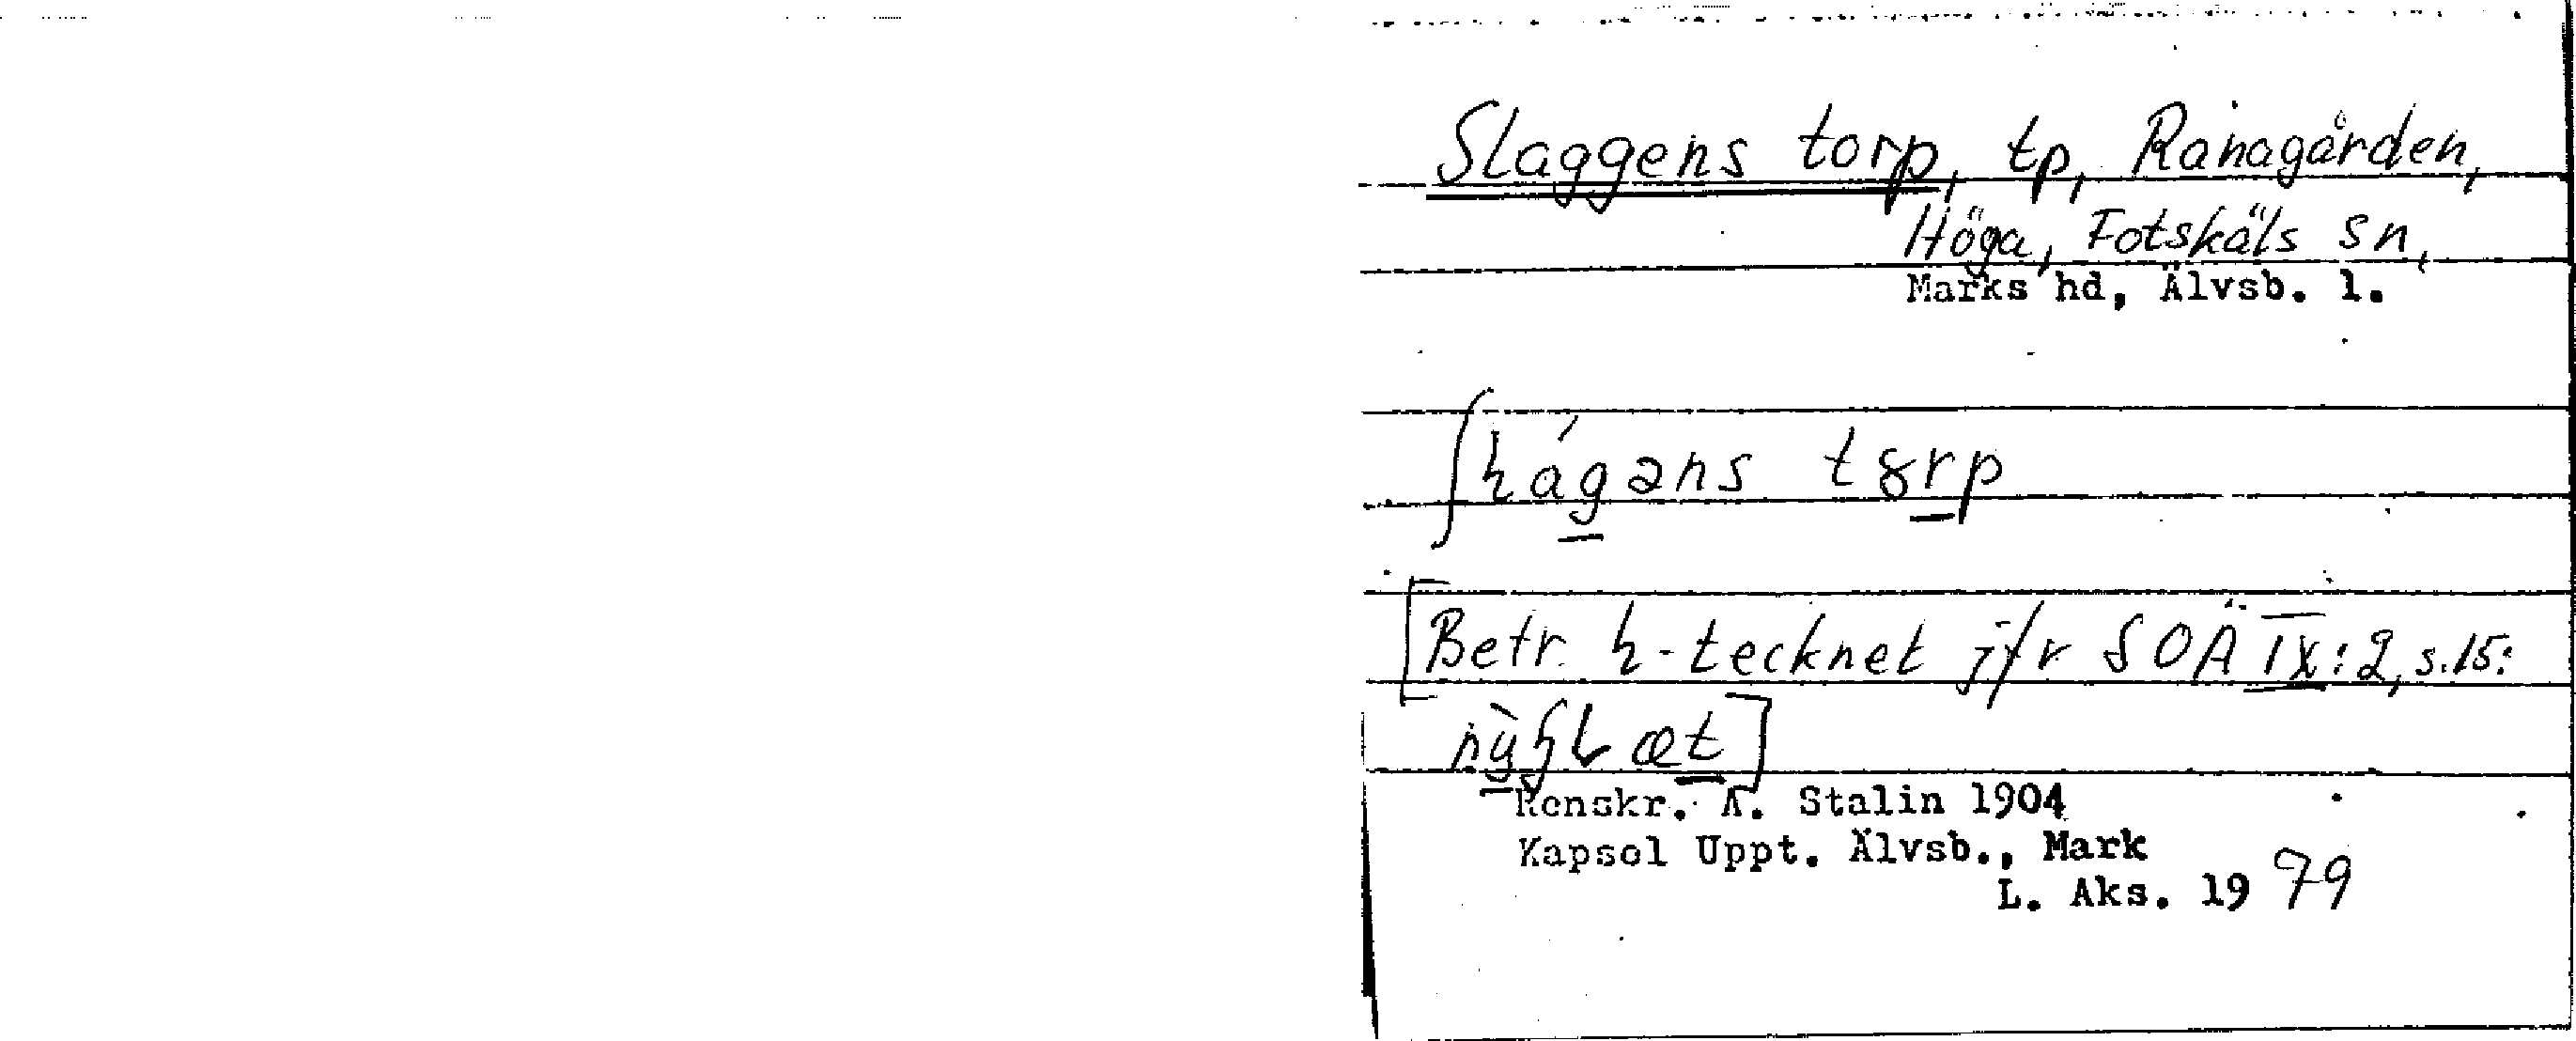 Slaggens torp, tp, Ranagården,
Höga, Fotskäls sn,
Marks hd, Älvsb. l.
ʃɦágəns tȣrp
[Betr. ɦ-tecknet jfr SOÄ IX:2, s.15:
et]
Renskr. A. Stalin 1904
Kapsel Uppt. Älvsb., Mark
L. Aks. 1979